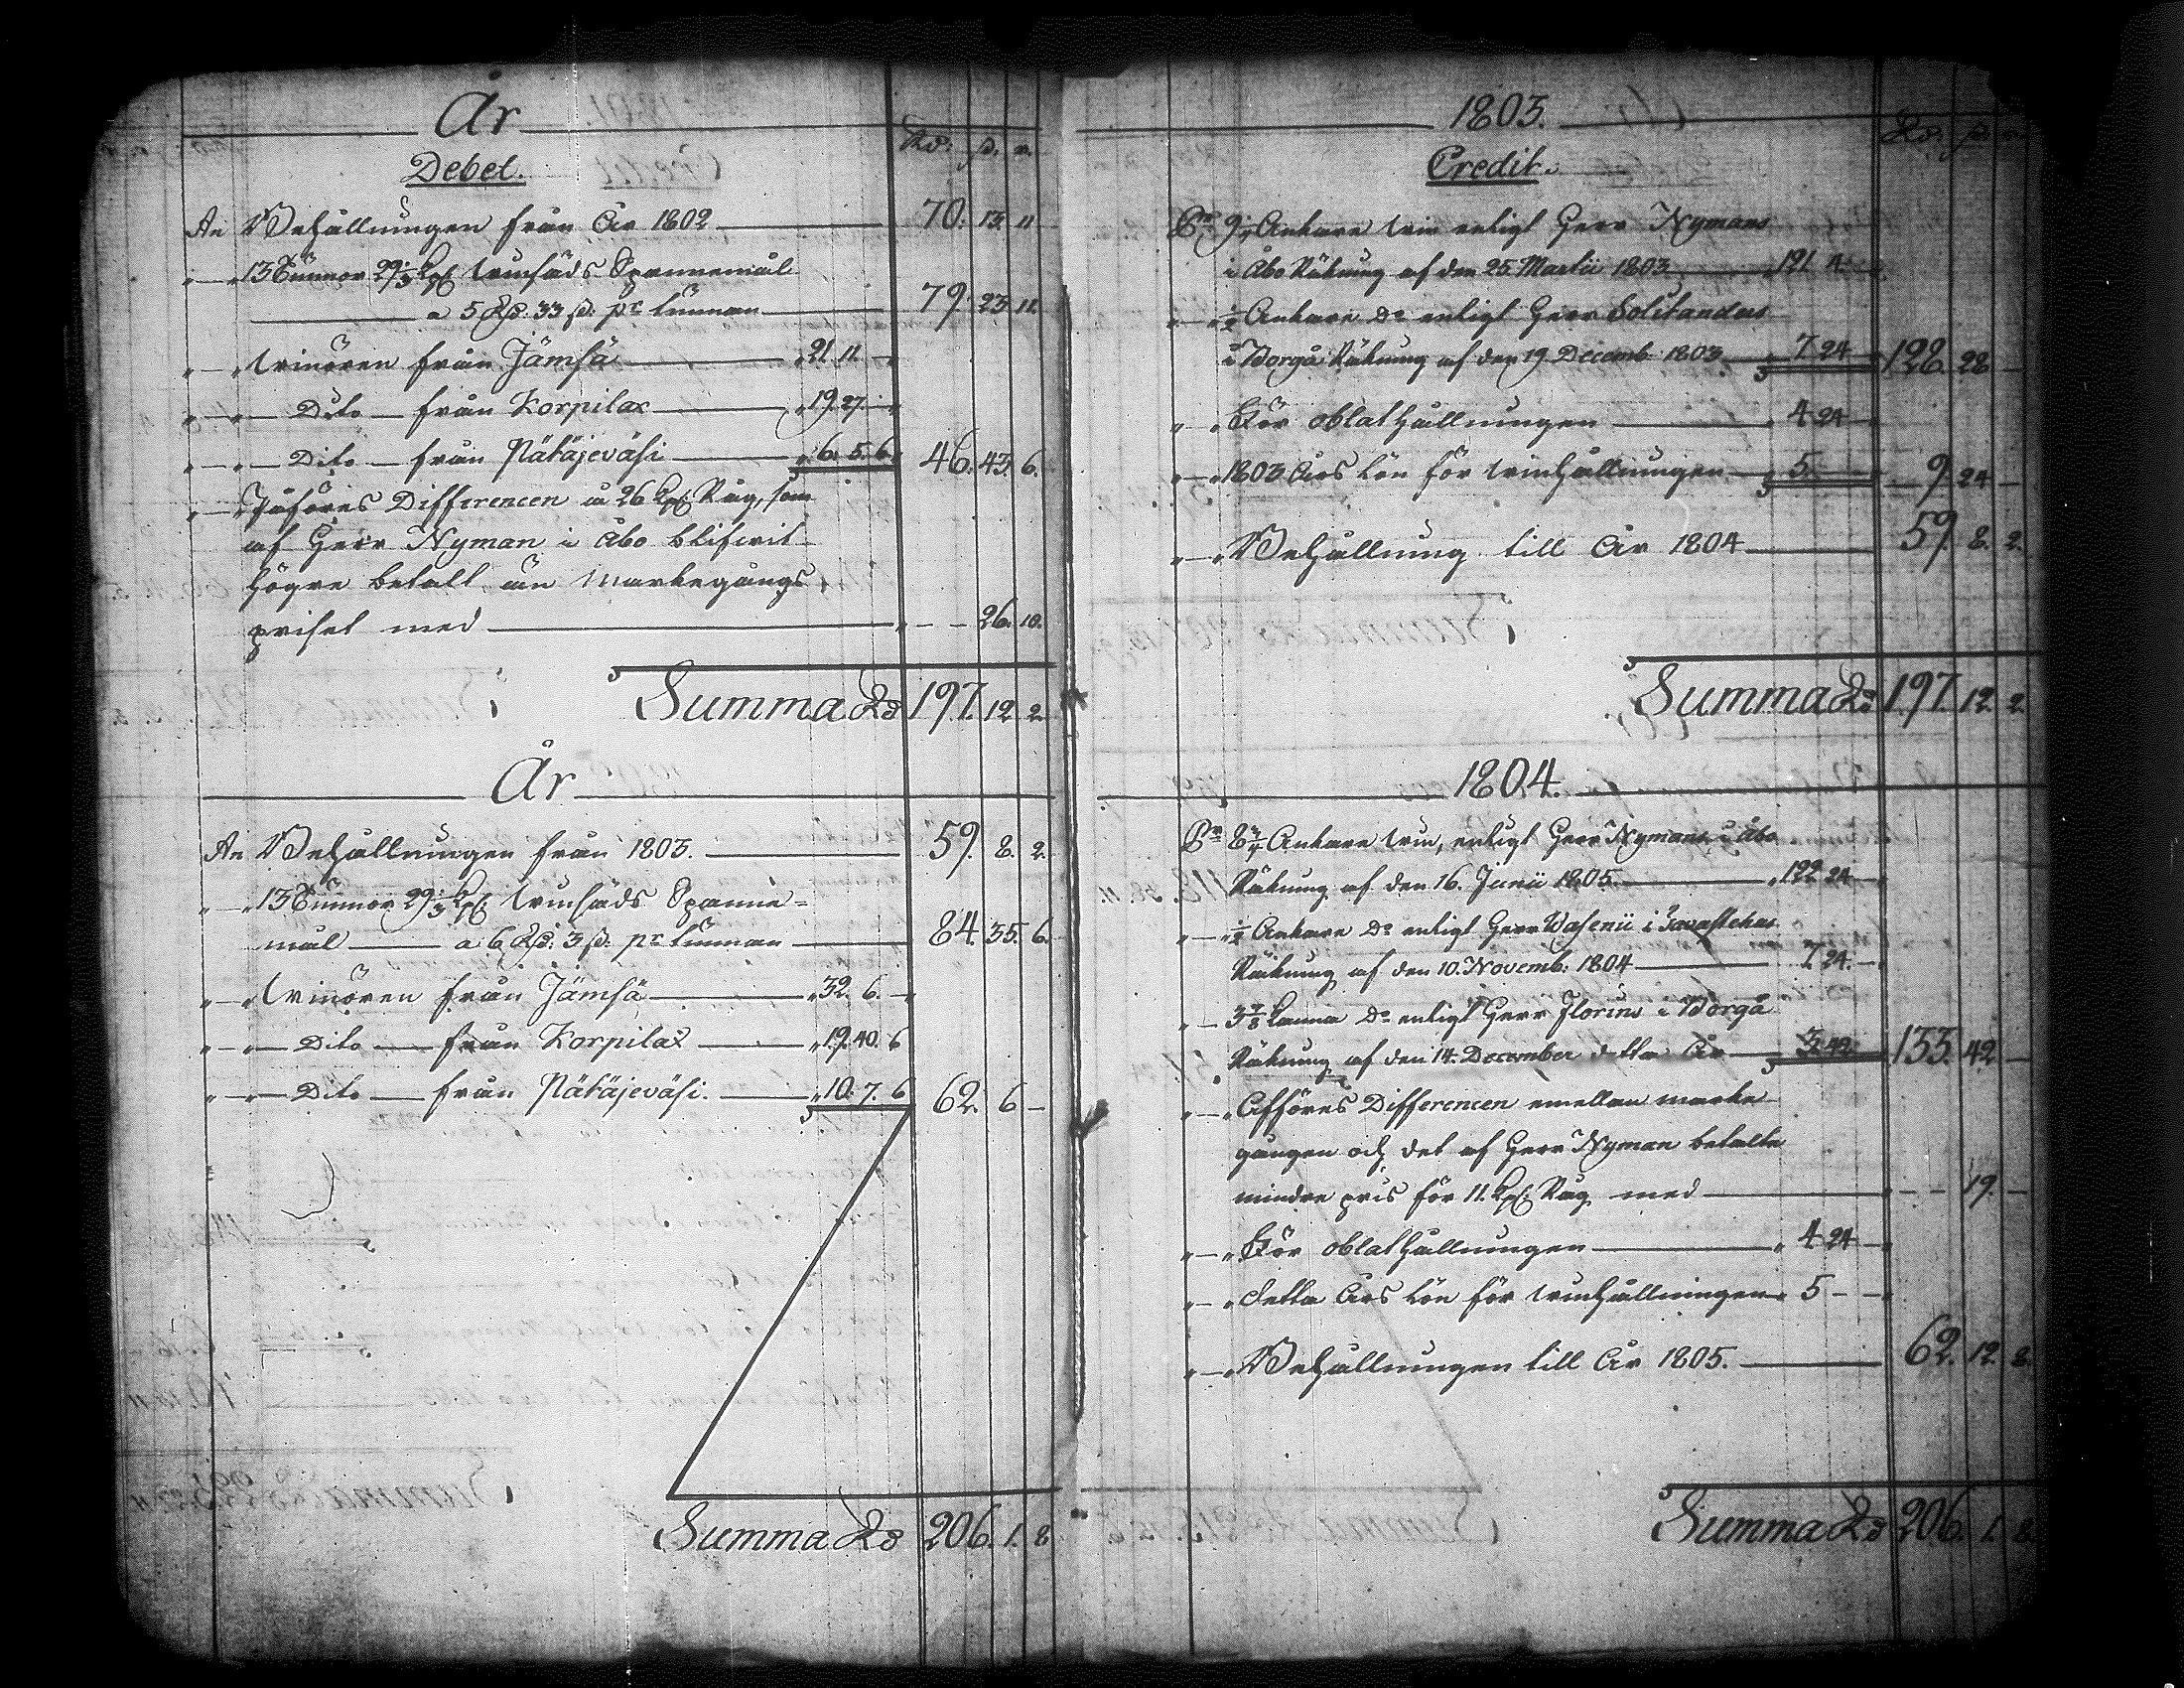 År
Debet.
Rd: ß. r.
An Behållningen från År 1802 70. 13. 11
" 13 Tunnor 29 1/3 Kpr winsäds Spannemål
a 5 Rd: 33 ß. pr tunnan 79. 23. 11.
" winören från Jämsä 21. 11. –
" " Dito från Korpilax 19. 27. –
" " Dito från Pätäjeväsi 6. 5. 6. 46. 43. 6.
" Påföres Differencen å 26 Kpr Råg, som
af Herr Nyman i Åbo blifwit
högre betalt än Markegångs
priset med – – 26. 10.
Summa Rd 197. 12. 2.
År
An Behållningen från 1803. 59. 8. 2.
" 13 Tunnor 29 1/3 Kpr winsäds Spanne=
mål a 6 Rd: 3 ß. pr tunnan 84. 35. 6.
" winören från Jämsä 32. 6. –
" " Dito från Korpilax 19. 40. 6
" " Dito från Pätäjeväsi. 10. 7. 6 62. 6 –
Summa Rd 206. 1. 8
1803.
Credit.
Rd. ß. r.
Pr 9 Ankare win enligt Herr Nymans
i Åbo Räkning af den 25. Martii 1803 121. 4. –
" 1/2 Ankare Do enligt Herr Solitanders
i Borgå Räkning af den 19 Decemb: 1803 7 24 128. 28 –
" För oblathållningen 4 24 –
" 1803 Års lön för winhållningen 5. – – 9. 24 –
" Behållning till År 1804 59. 8. 2.
Summa Rd 197. 12. 2.
1804.
Pr 8 Ankare win, enligt Herr Nymans i Åbo
Räkning af den 16. Junii 1805. 122 24 –
" 1/2 Ankare Do enligt Herr Wasenii i Tavastehus
Räkning af den 10. Novemb: 1804 7. 24. –
" 3 7/8 kanna Do enligt Herr Florins i Borgå
Räkning af den 14. December detta År 3. 42. 133. 42. –
" Afföres Differencen emellan marke
gången och det af Herr Nyman betalte
mindre pris för 11. Kpr Råg med – – 19. –
" För oblathållningen 4 24 –
" detta Års lön för winhållningen 5 – –
" Behållningen till År 1805. 62. 12. 8.
Summa Rd 206. 1. 8.